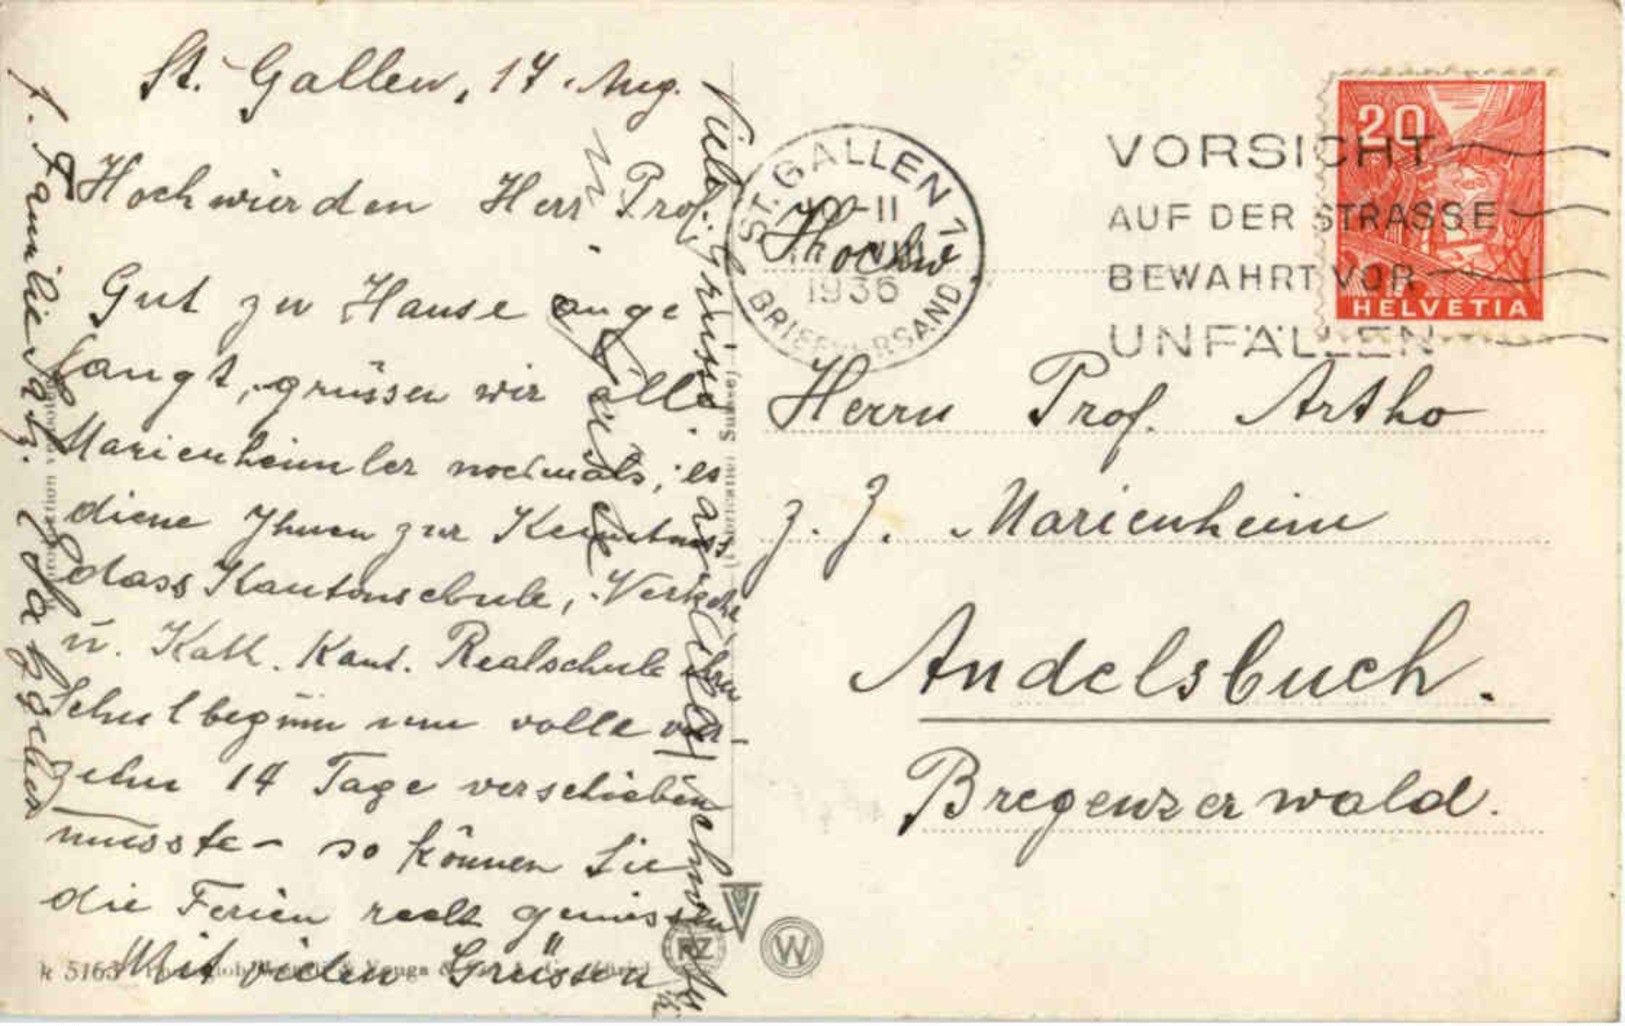 St. Gallen, 17. Aug.
Hochwürden Herr Prof.
Gut zu Hause ange
langt, grüssen wir alle
Marienheimler nochmals, es
diene Ihnen zur Kenntniss
dass Kantonschule, Verkehr
u. Kath. Kant. Realschule ihren
Schulbeginn um volle vier-
zehn 14 Tage verschieben
musste - so können Sie
die Ferien recht geniessen
Mit vielen Grüssen
f. Familie
Viele Grüsse an
ST. GALLEN 1
-11
1936
BRIEFVERSAND
VORSICHT
AUF DER STRASSE
BEWAHRT VOR
UNFÄLLEN
20
HELVETIA
Hochw
Herrn Prof. Artho
z. Z. Marienheim
Andelsbuch.
Bregenzerwald.
k 5165
PZ
W